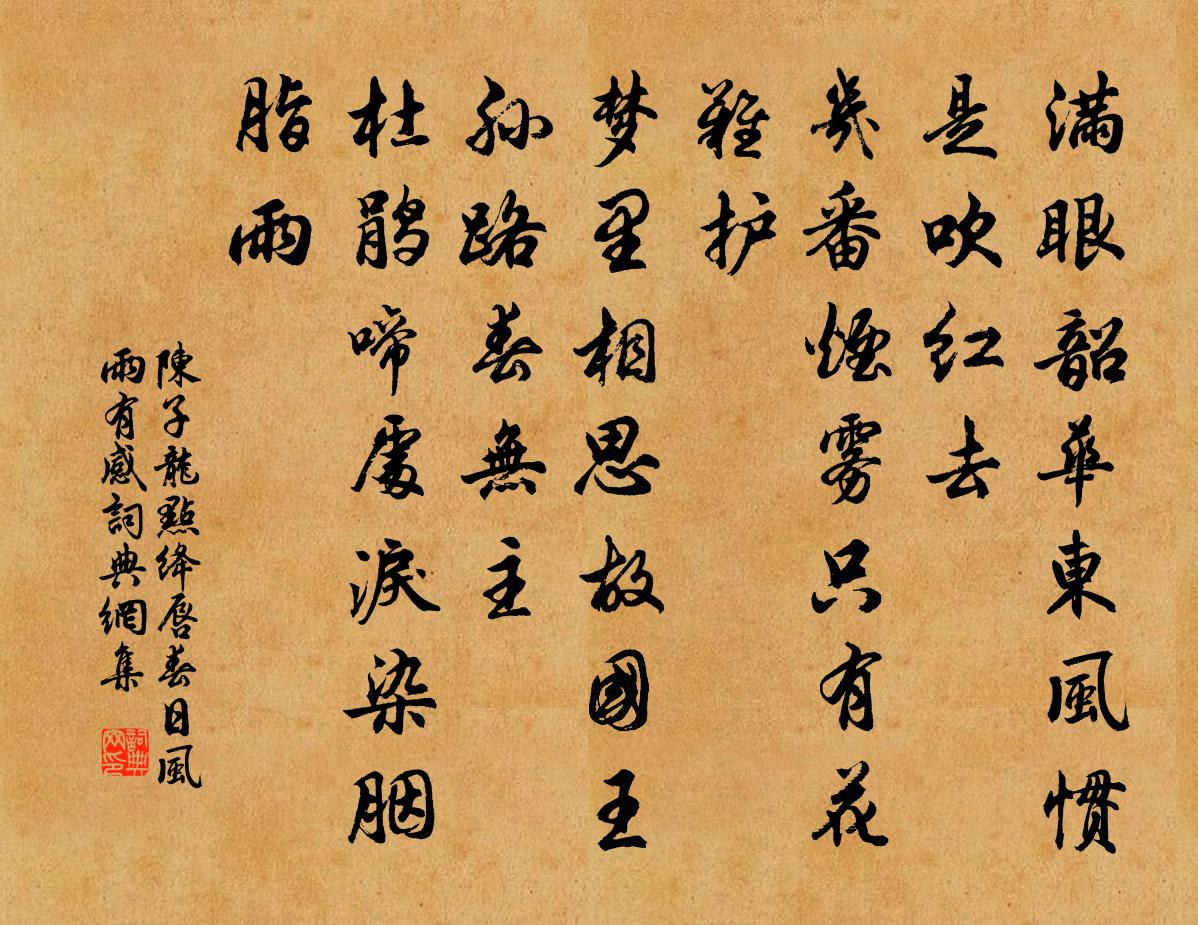 满眼韶華東風慣
是吹红去
幾番煙雾只有花
難护
梦里相思故國王
孙路春無主
杜鹃啼處淚染胭
脂雨
陳子龍點绛唇春日風
雨有感詞典網集
詞典
网印